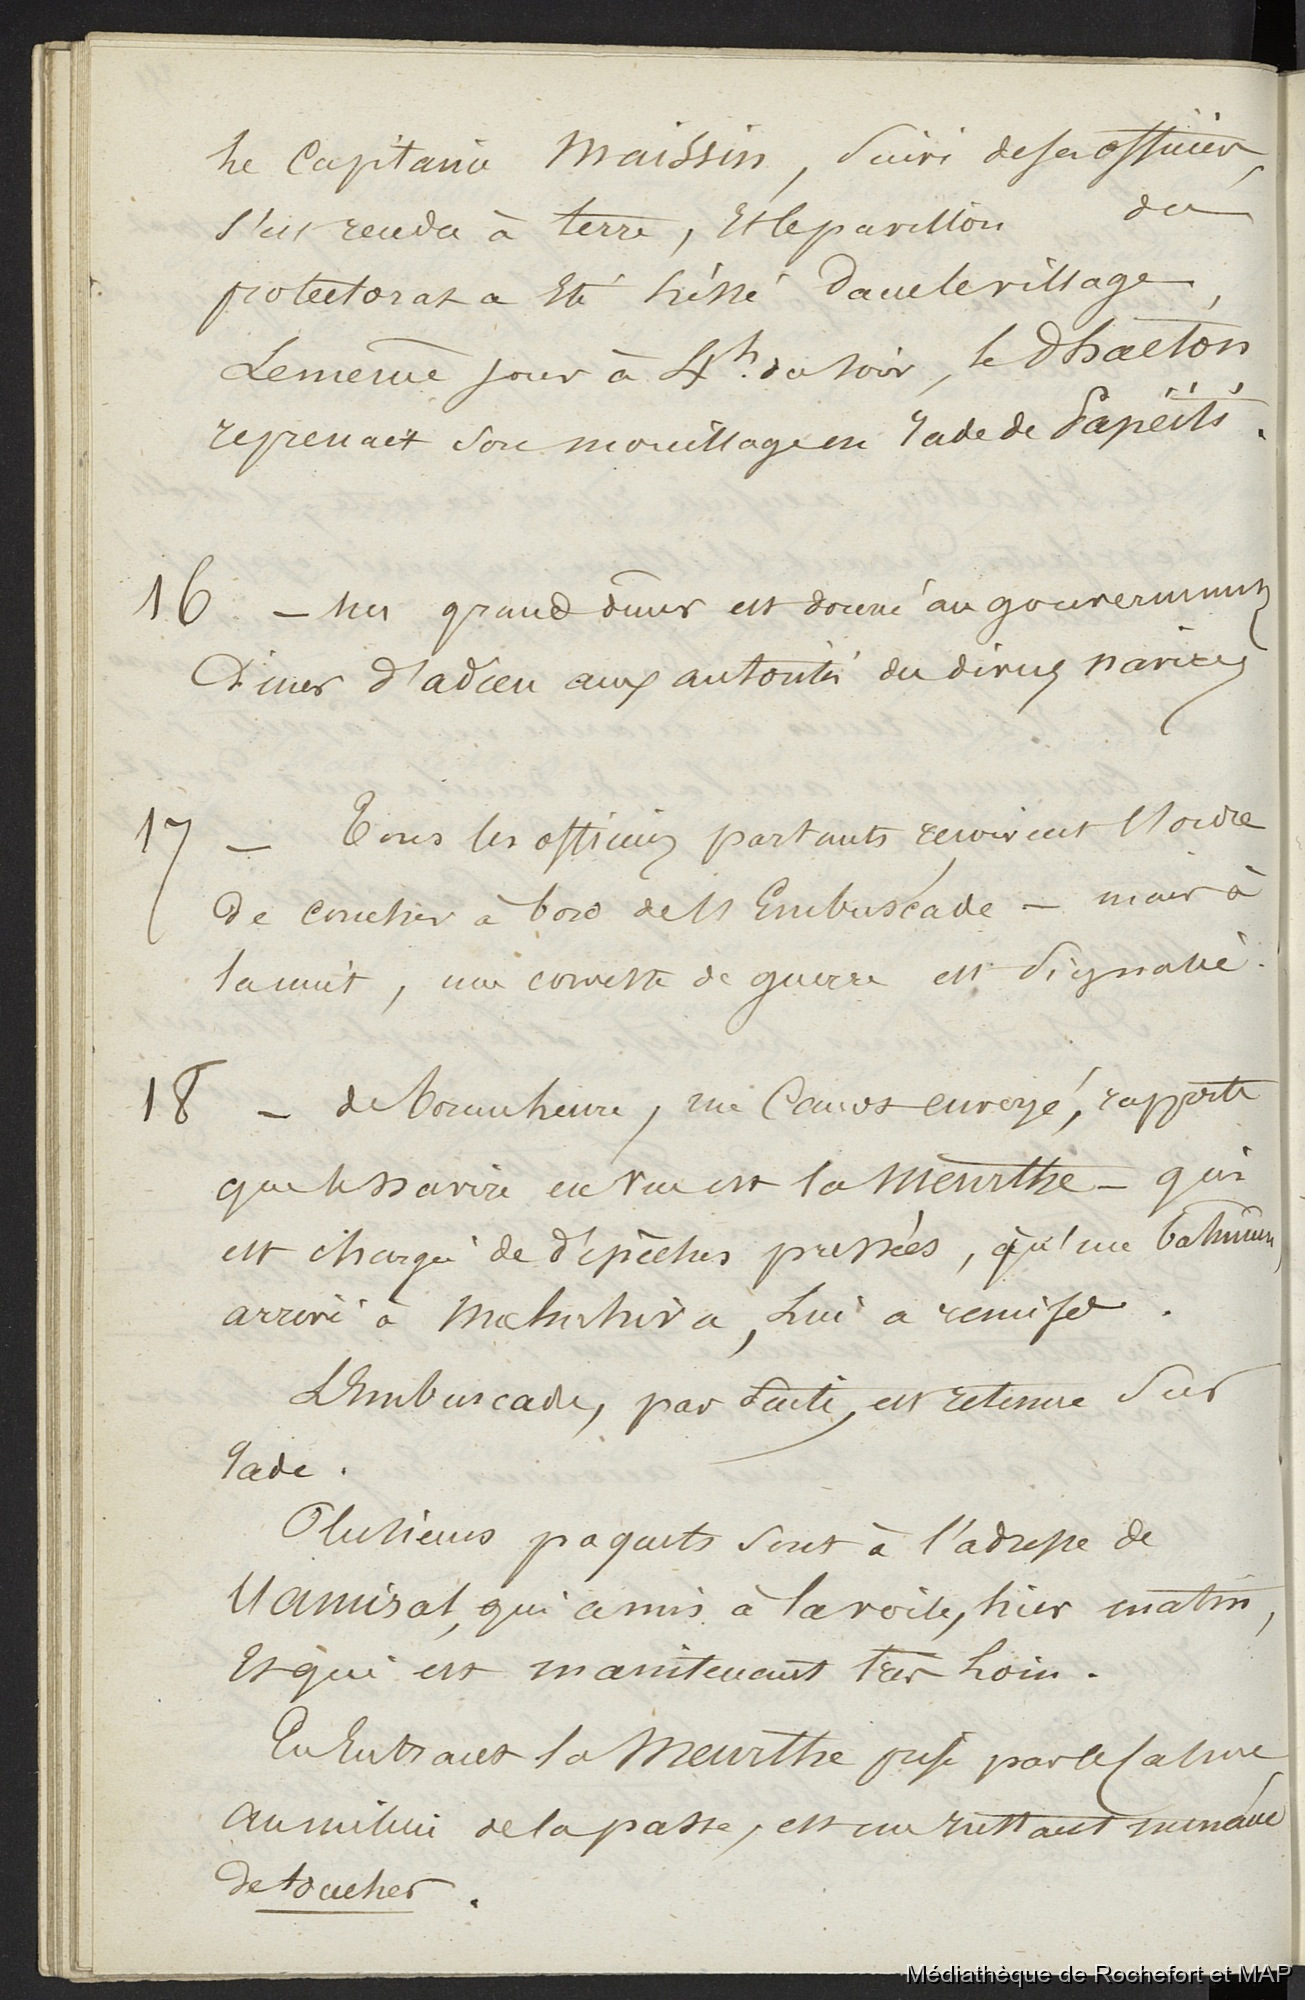 Le Capitaine Maissin, suivi de ses officiers,
s'est rendu à terre, et le pavillon du
protectorat a été hissé dans le village,
Le même jour à 4h. du soir, le Phaéton
reprenait son mouillage en rade de Papéïti.
16 — Un grand dîner est donné au gouvernement
Dîner d'adieu aux autorités du divers navires
17 — Tous les officiers partants reçoivent l'ordre
de coucher à bord de l'Embuscade — mais à
la nuit, une corvette de guerre est signalée.
18 — de bonne heure, un Canot envoyé, rapporte
que le navire en vue est la Meurthe — qui
est chargée de dépêches pressées, qu'un bâtiment,
arrivé à Nukuhiva, lui a remises.
L'Embuscade, par suite, est retenue sur
rade.
Plusieurs paquets sont à l'adresse de
l'amiral, qui a mis à la voile, hier matin,
et qui est maintenant très loin.
En Entrant la Meurthe prise par le calme
au milieu de la passe, est un instant menacée
de toucher.
Médiathèque de Rochefort et MAP